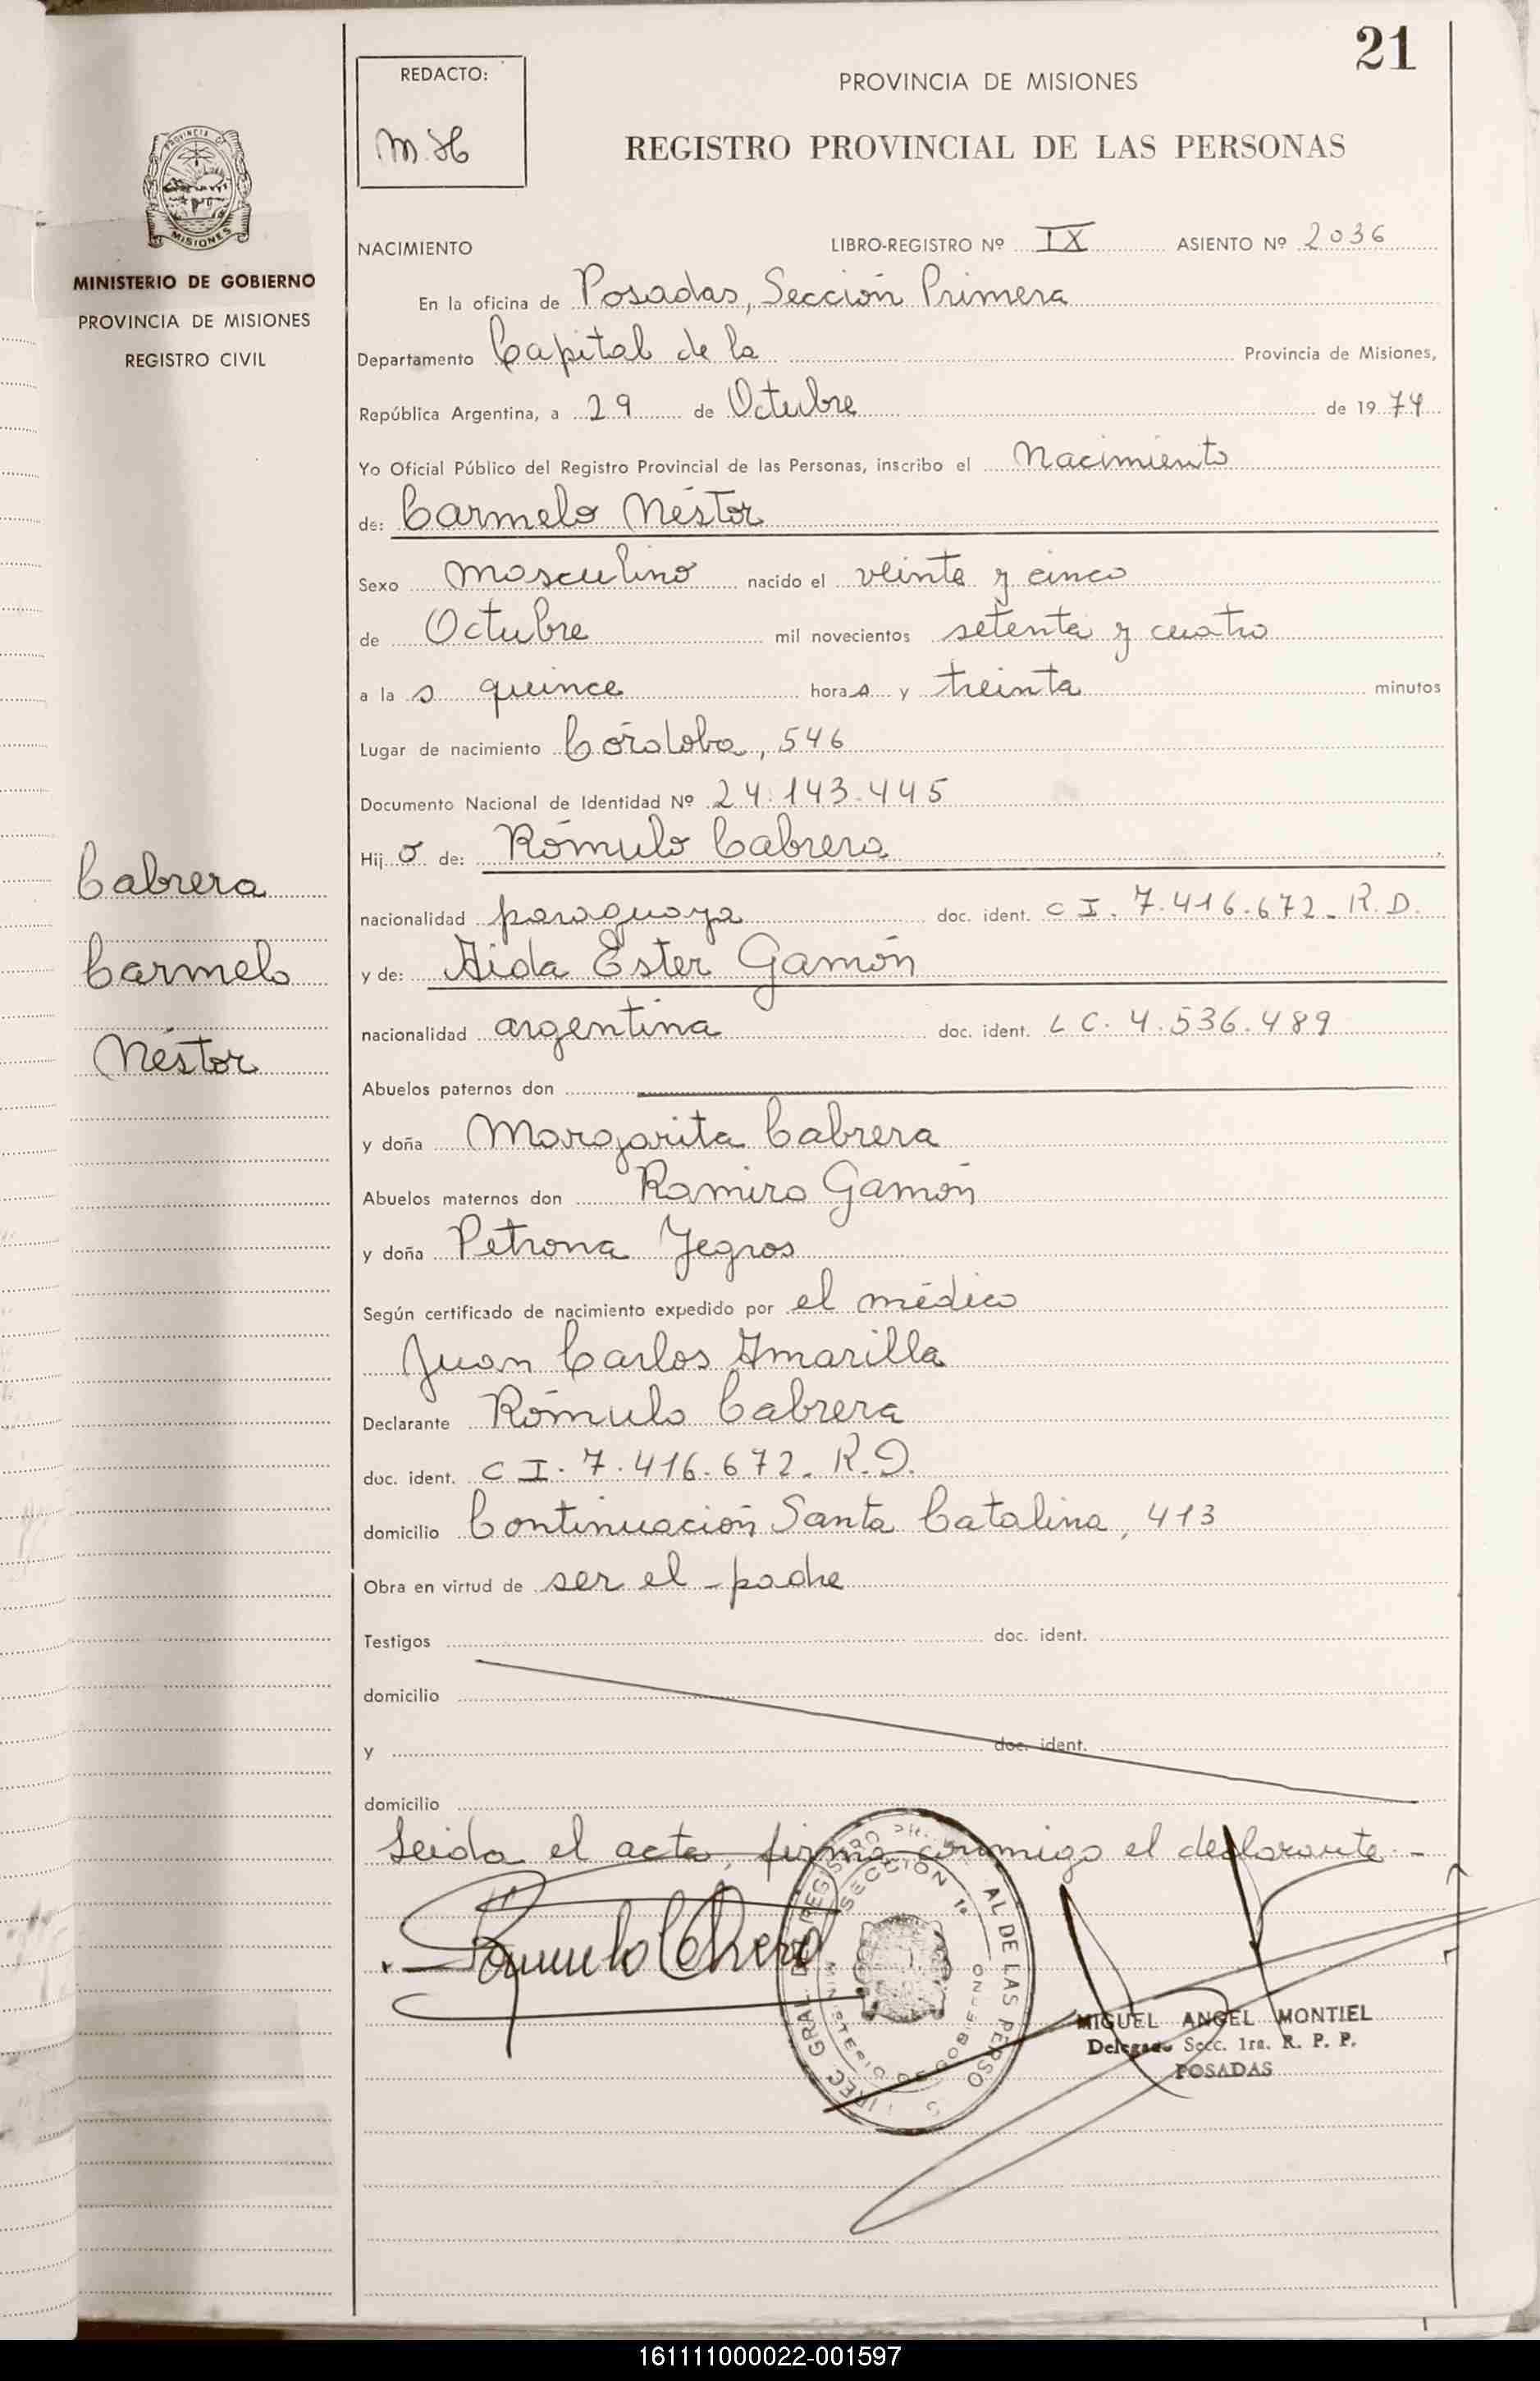 21
REDACTO:
M.H
PROVINCIA DE MISIONES
REGISTRO PROVINCIAL DE LAS PERSONAS
PROVINCIA
MISIONES
MINISTERIO DE GOBIERNO
PROVINCIA DE MISIONES
REGISTRO CIVIL
NACIMIENTO LIBRO-REGISTRO Nº IX ASIENTO Nº 2036
En la oficina de Posadas, Sección Primera
Departamento Capital de la Provincia de Misiones,
República Argentina, a 29 de Octubre de 1974
Yo Oficial Público del Registro Provincial de las Personas, inscribo el Nacimiento
de: Carmelo Néstor
Sexo masculino nacido el veinte y cinco
de Octubre mil novecientos setenta y cuatro
a las quince horas y treinta minutos
Lugar de nacimiento Córdoba, 546
Documento Nacional de Identidad Nº 24.143.445
Hijo de: Rómulo Cabrera
nacionalidad paraguaya doc. ident. CI. 7.416.672. R.D.
y de: Aida Ester Gamón
nacionalidad argentina doc. ident. LC. 4.536.489
Abuelos paternos don
y doña Margarita Cabrera
Abuelos maternos don Ramiro Gamón
y doña Petrona Yegros
Según certificado de nacimiento expedido por el médico
Juan Carlos Amarilla
Declarante Rómulo Cabrera
doc. ident. CI. 7.416.672. R.D.
domicilio Continuación Santa Catalina, 413
Obra en virtud de ser el padre
Testigos doc. ident.
domicilio
y doc. ident.
domicilio
Leida el acta, firma conmigo el declarante.-
Cabrera
Carmelo
Néstor
SECCION 1ª
MINISTERIO DE GOBIERNO
MIGUEL ANGEL MONTIEL
Delegado Secc. 1ra. R. P. P.
POSADAS
161111000022-001597